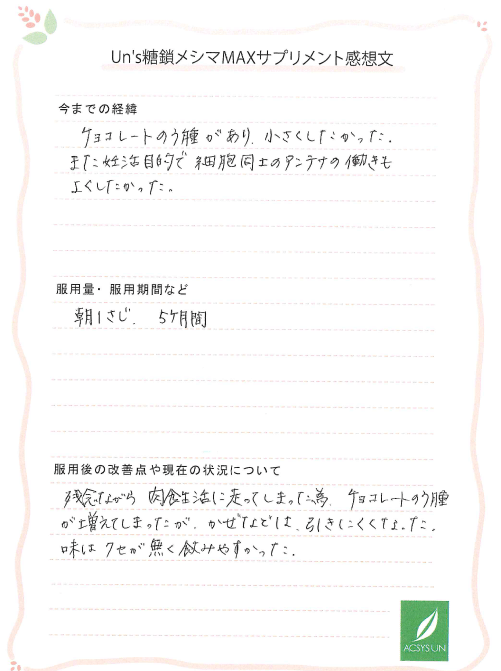 Un's糖鎖メシマMAXサプリメント感想文
今までの経緯
チョコレートのう腫があり、小さくしたかった。
また妊活目的で細胞同士のアンテナの働きも
よくしたかった。
服用量・服用期間など
朝1さじ、5ケ月間
服用後の改善点や現在の状況について
残念ながら肉食生活に走ってしまった為、チョコレートのう腫
が増えてしまったが、かぜなどは、引きにくくなった。
味はクセが無く飲みやすかった。
ACSYSUN